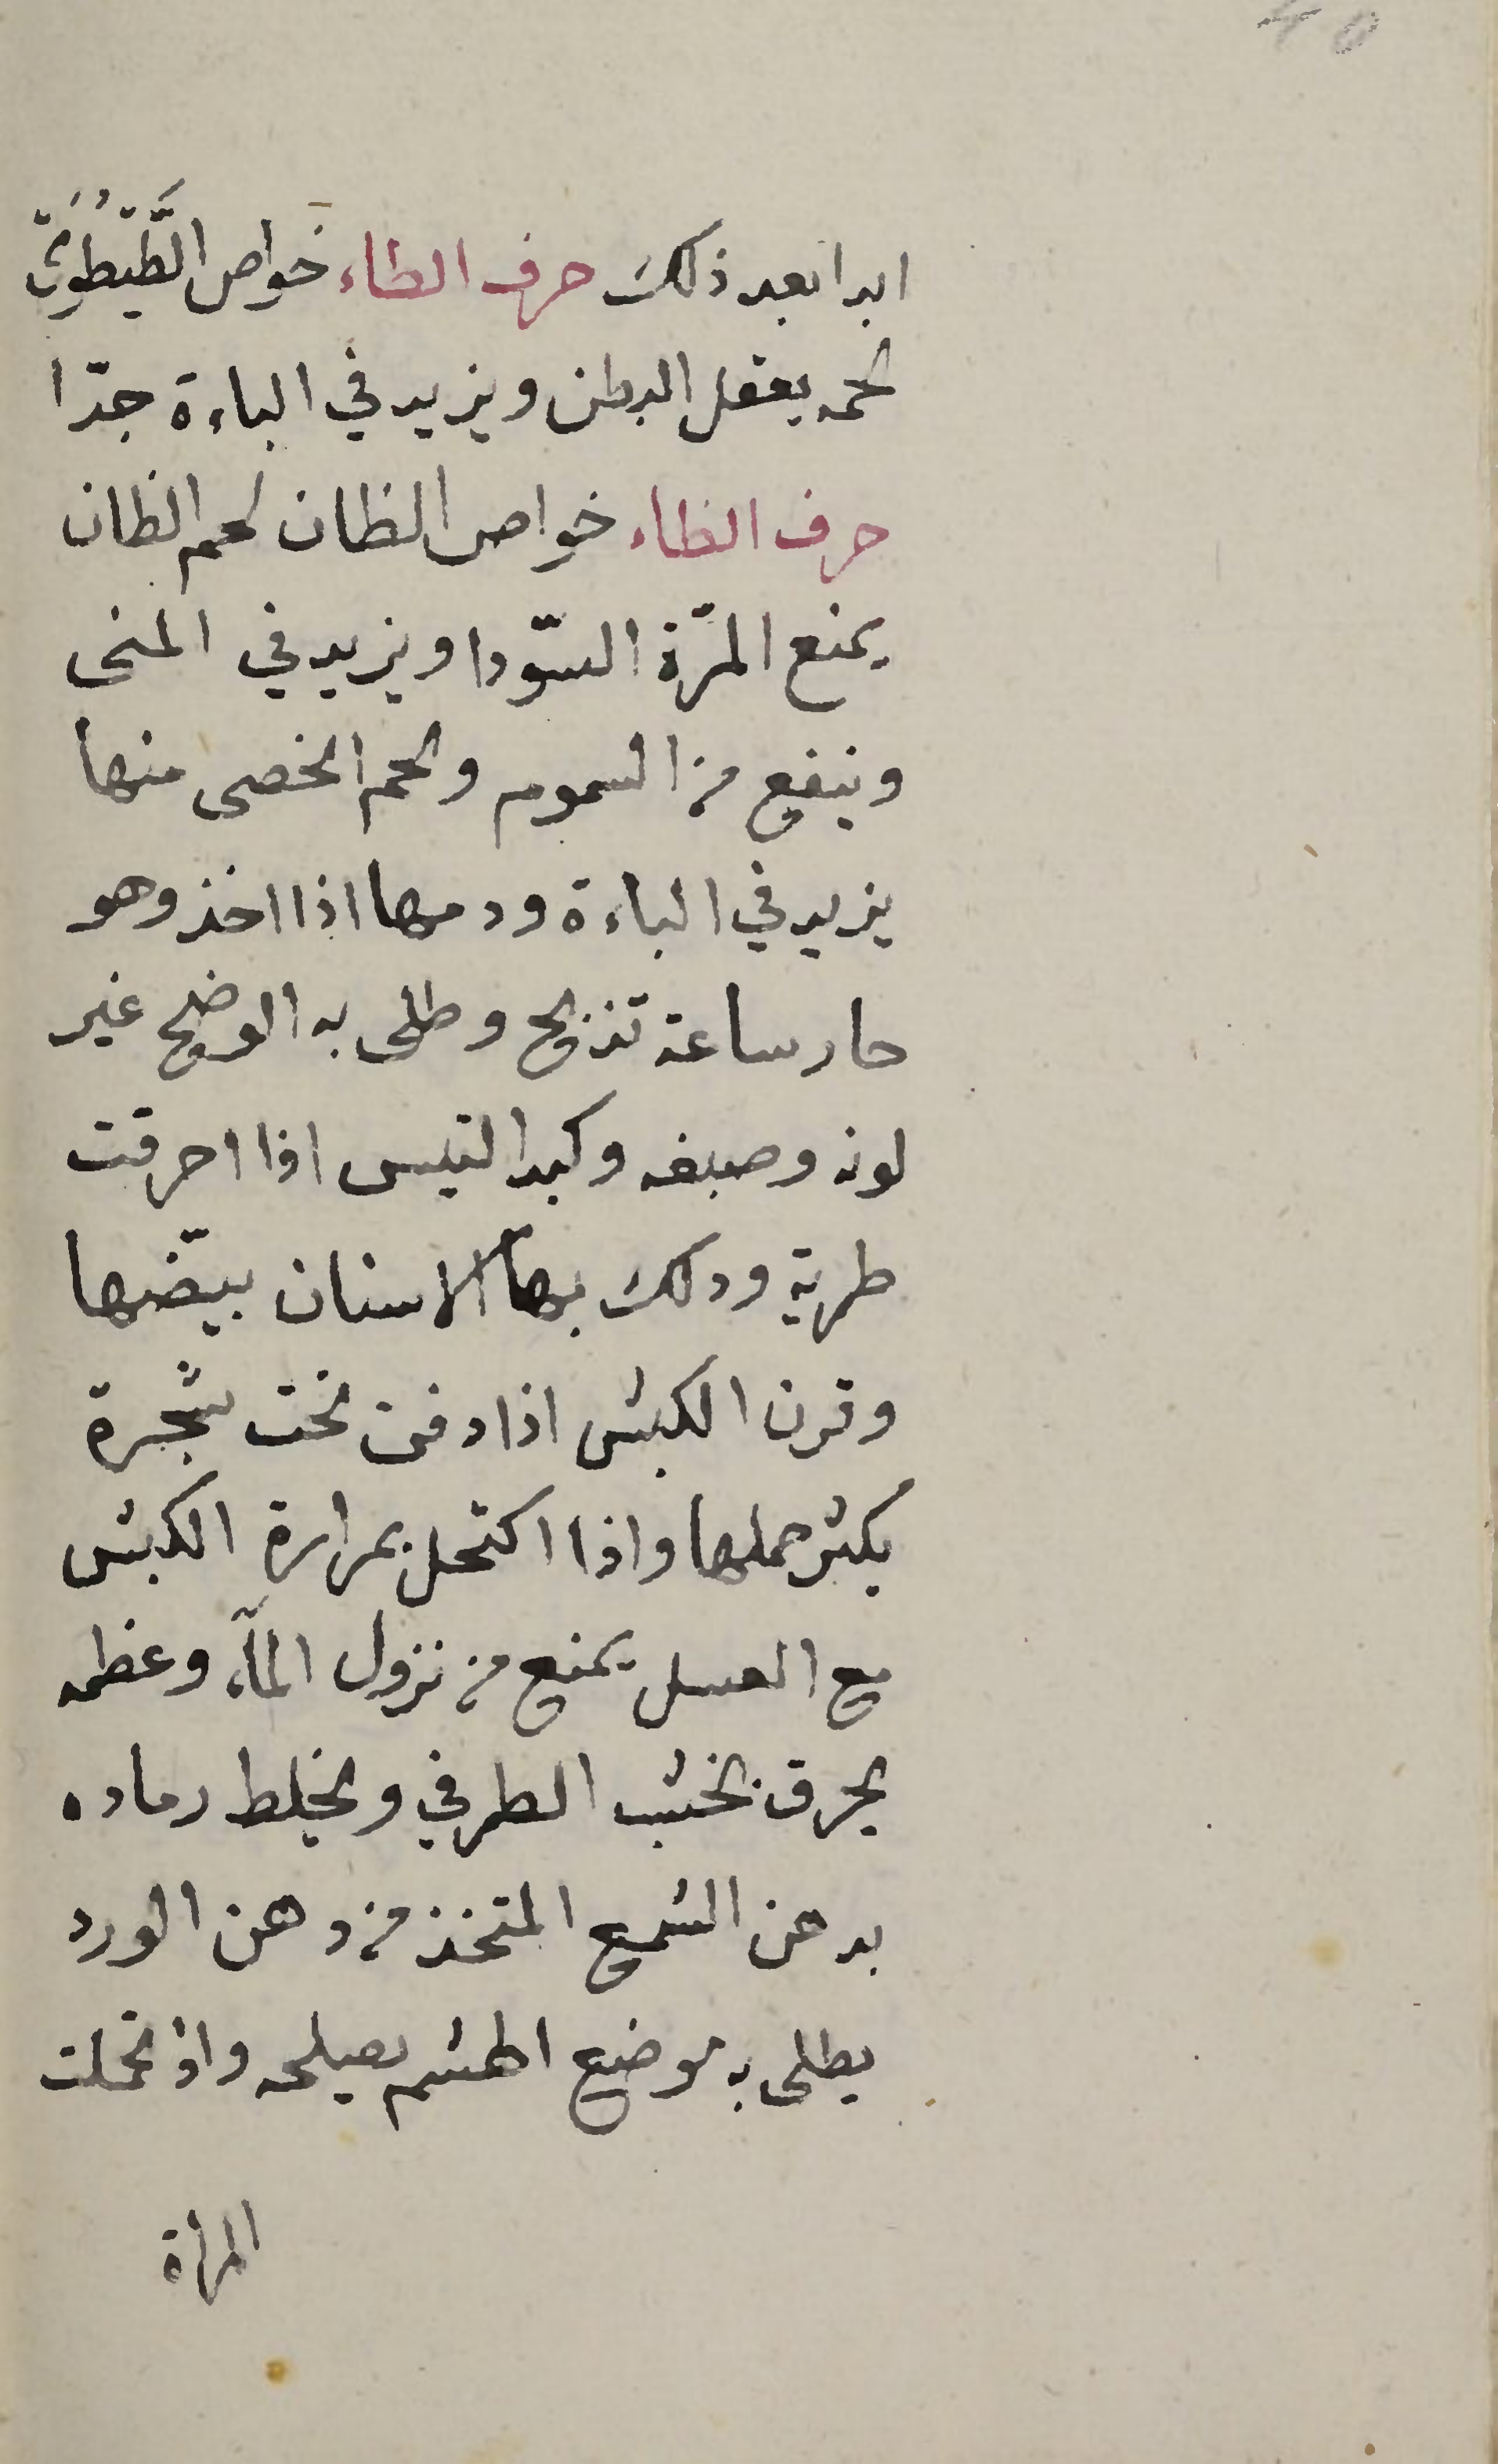 40
ابدا بعد ذلك حرف الطاء خواص الطَّيْطُوَى
لحمه يعقل البطن ويزيد في الباءة جدّا
حرف الظاء خواص الظان لحم الظان
يمنع المرّة السّودا ويزيد في المنى
وينفع من السموم ولحم الخصى منها
يزيد في الباءة ودمها اذا اخذ وهو
حار ساعة تذبح وطلى به الوضح غير
لونه وصبغه وكبد التيس اذا احرقت
طرية ودلك بها الاسنان بيّضها
وقرن الكبش اذا دفن تحت شجرة
يكثر حملها واذا اكتحل بمرارة الكبش
مع العسل يمنع من نزول المآء وعظمه
يحرق بخشب الطرفي ويخلط رماده
بدهن الشمع المتخذ من دهن الورد
يطلى به موضع الهشم يصلحه واذ تحملت
المرأة